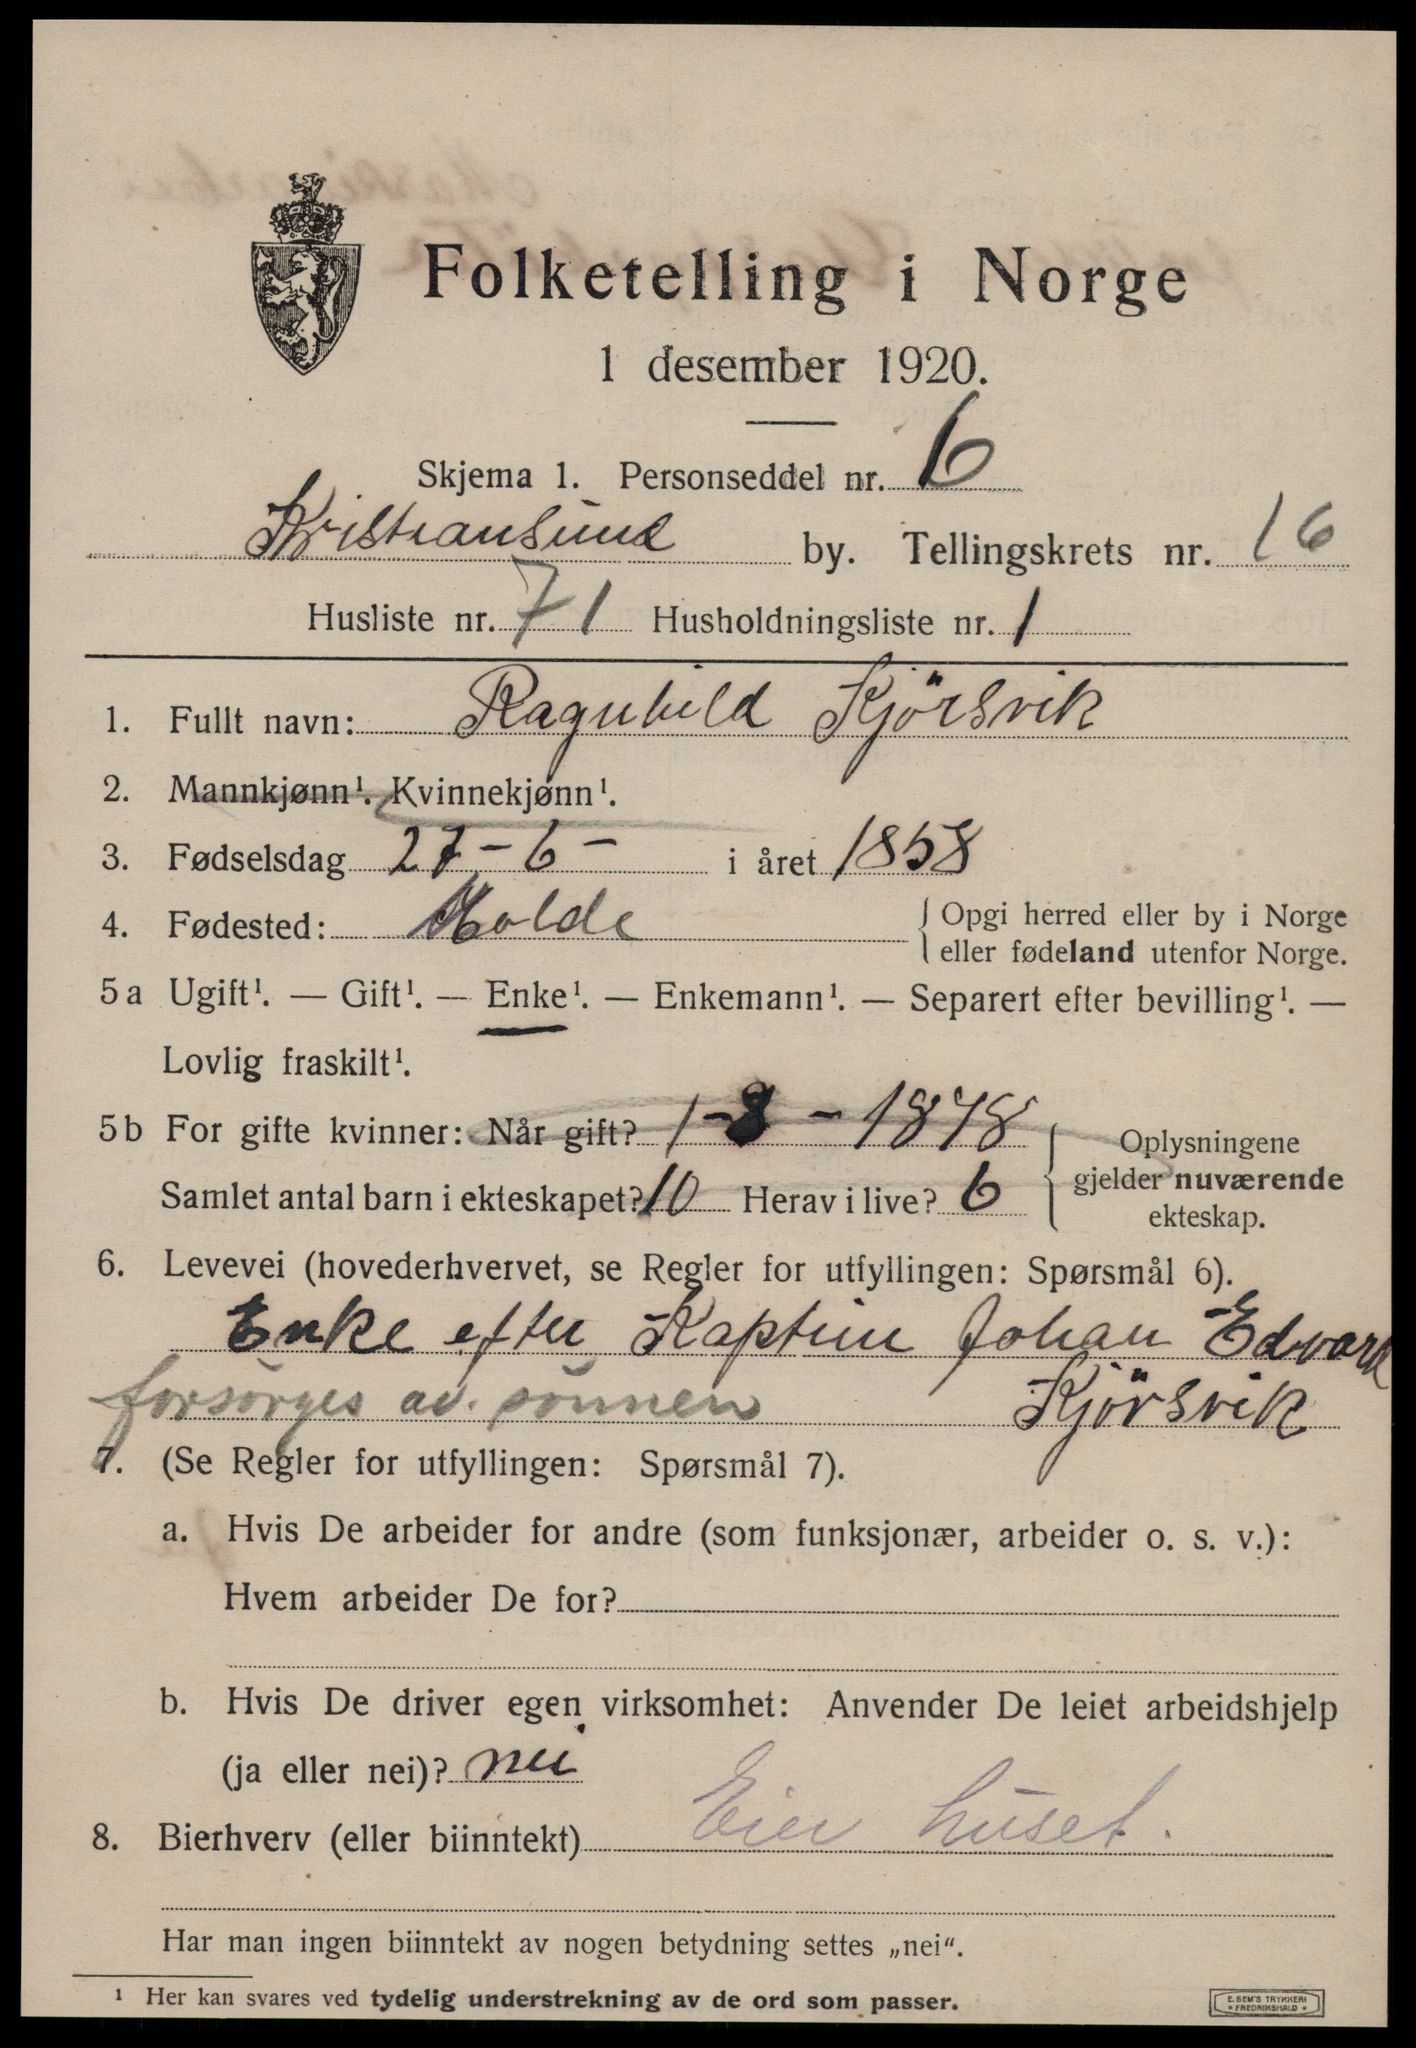 Folketelling i Norge
1 desember 1920.
Skjema 1. Personseddel nr. 6
Kristiansund by. Tellingskrets nr. 16
Husliste nr. 71 Husholdningsliste nr. 1
1. Fullt navn: Ragnhild Kjörsvik
2. Mannkjønn¹. Kvinnekjønn¹.
3. Fødselsdag 27-6- i året 1858
4. Fødested: Molde { Opgi herred eller by i Norge
eller fødeland utenfor Norge.
5a Ugift¹. — Gift¹. — Enke¹. — Enkemann¹. — Separert efter bevilling¹. —
Lovlig fraskilt¹.
5b For gifte kvinner: Når gift? 1-8-1878
Samlet antal barn i ekteskapet? 10 Herav i live? 6
Oplysningene
gjelder nuværende
ekteskap.
6. Levevei (hovederhvervet, se Regler for utfyllingen: Spørsmål 6).
Enke efter Kaptein Johan Edvard
forsörges av sönnen Kjörsvik
7. (Se Regler for utfyllingen: Spørsmål 7).
a. Hvis De arbeider for andre (som funksjonær, arbeider o. s. v.):
Hvem arbeider De for?
b. Hvis De driver egen virksomhet: Anvender De leiet arbeidshjelp
(ja eller nei)? nei
8. Bierhverv (eller biinntekt) Eier huset.
Har man ingen biinntekt av nogen betydning settes „nei“.
¹ Her kan svares ved tydelig understrekning av de ord som passer.
E. SEM'S TRYKKERI
• FREDRIKSHALD •